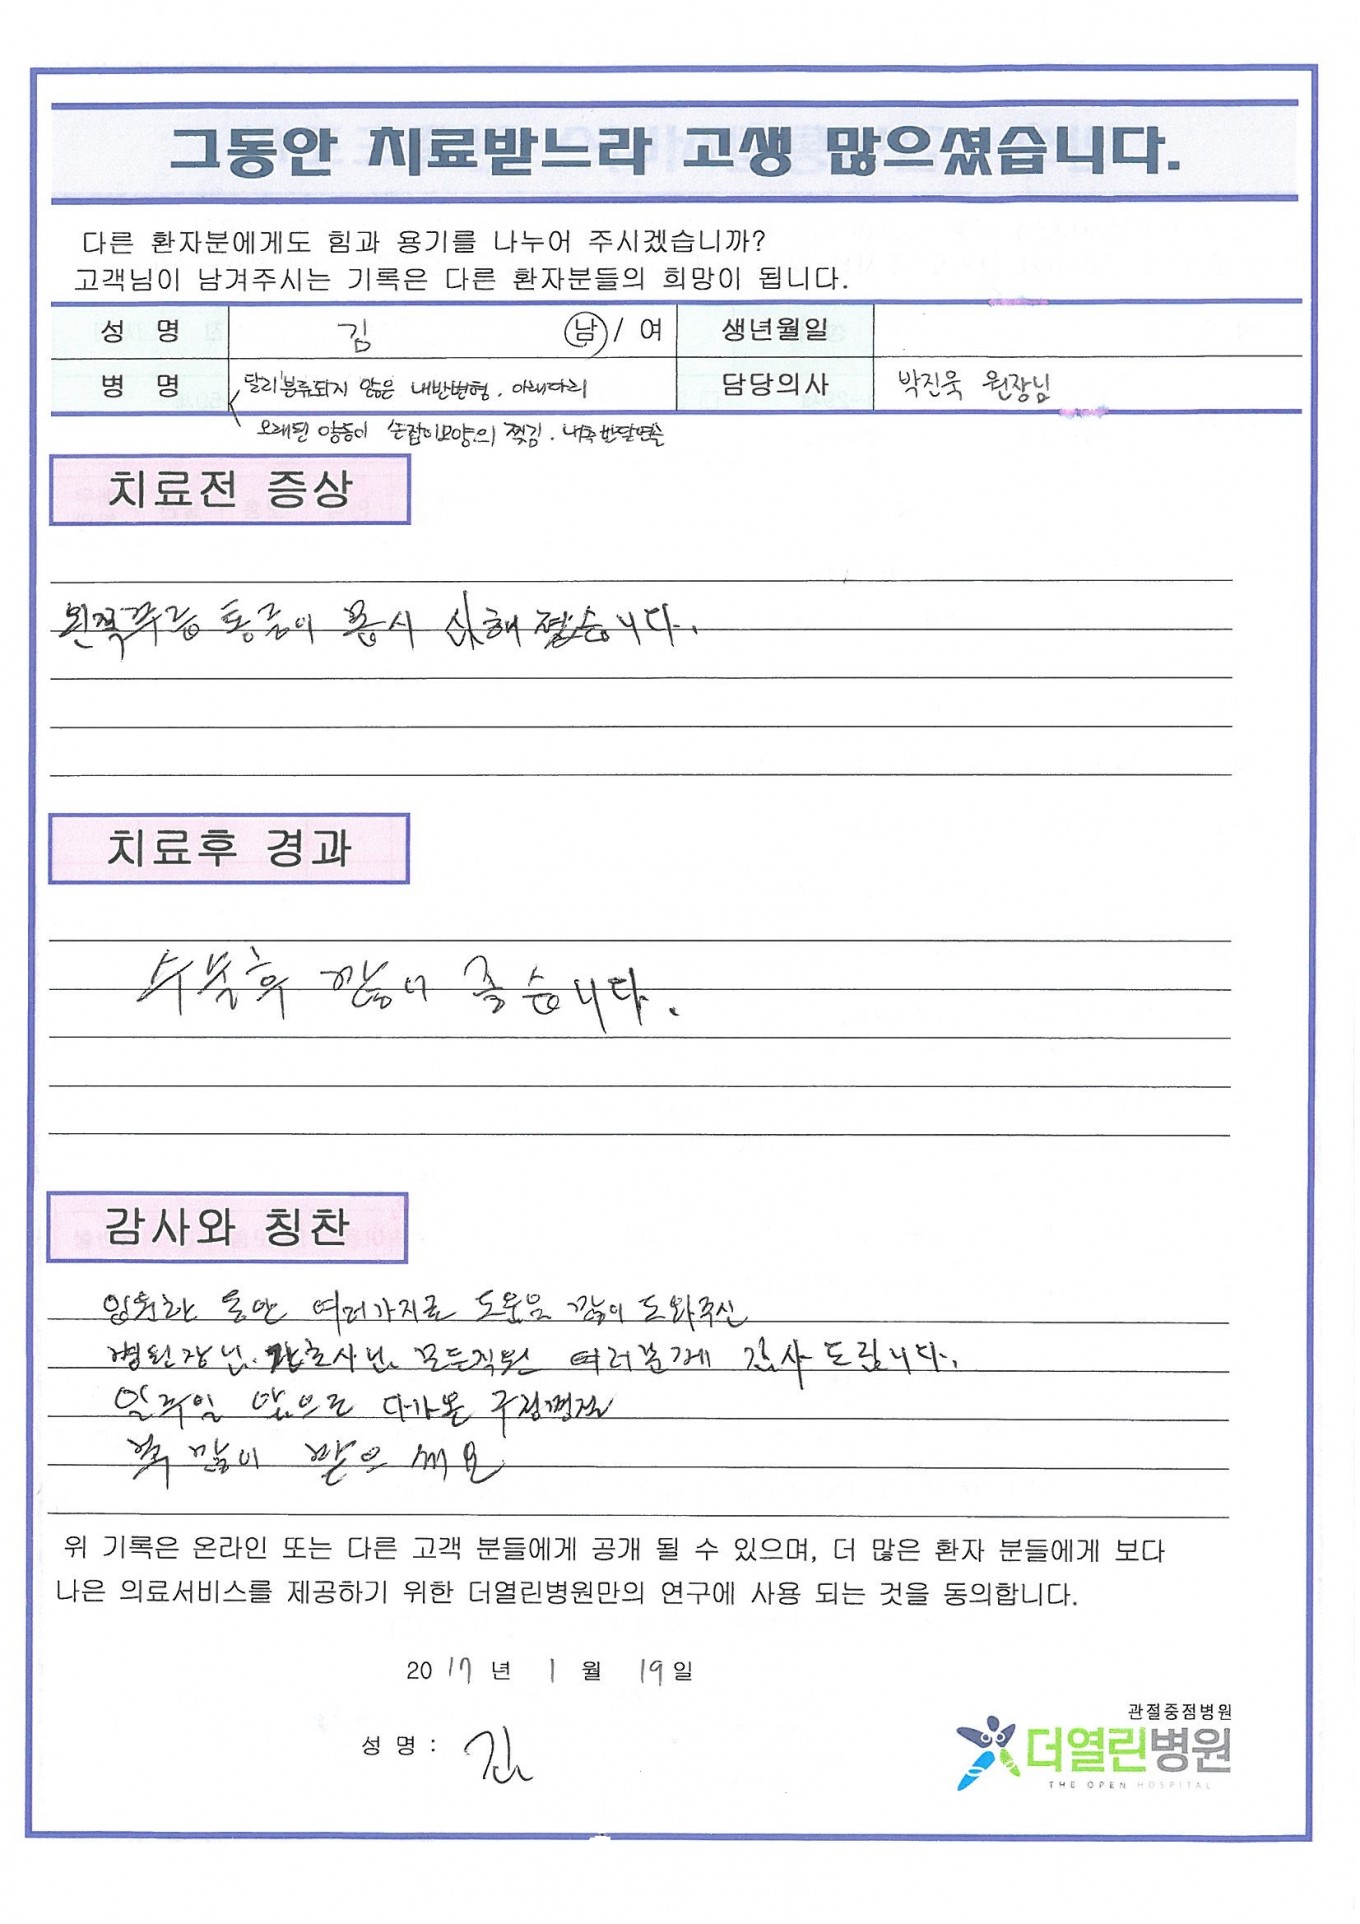 그동안 치료받느라 고생 많으셨습니다.
다른 환자분에게도 힘과 용기를 나누어 주시겠습니까?
고객님이 남겨주시는 기록은 다른 환자분들의 희망이 됩니다.
성 명 김 남 / 여 생년월일
병 명 달리 분류되지 않은 내반변형. 아래다리 담당의사 박진욱 원장님
오래된 양동이 손잡이모양의 찢김. 내측 반달연골
치료전 증상
왼쪽 통증이 심해 졌습니다.
치료후 경과
수술후 많이 좋습니다.
감사와 칭찬
입원한 동안 여러가지로 도움을 많이 도와주신
병원장님. 간호사님. 모든직원 여러분께 감사 드립니다.
일주일 앞으로 다가온 구정명절
복 많이 받으세요
위 기록은 온라인 또는 다른 고객 분들에게 공개 될 수 있으며, 더 많은 환자 분들에게 보다
나은 의료서비스를 제공하기 위한 더열린병원만의 연구에 사용 되는 것을 동의합니다.
2017 년 1 월 19 일
성 명 : 김
관절중점병원
더열린병원
THE OPEN HOSPITAL